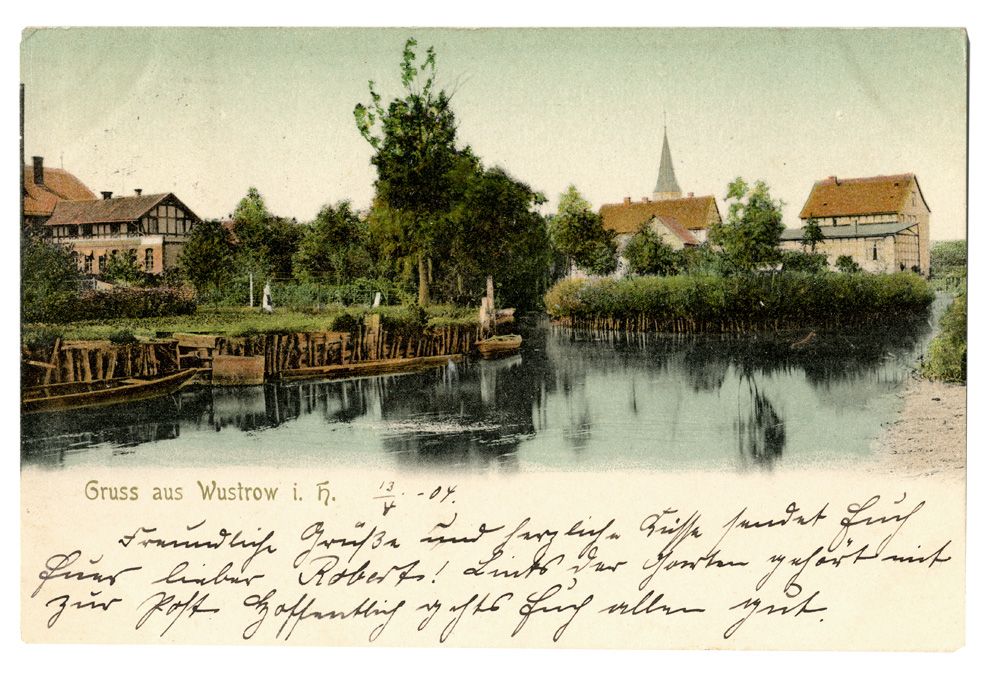 Gruss aus Wustrow i. H. 13/V. -04.
Freundliche Grüße und herzliche Küsse sendet Euch
Euer lieber Robert! Links der Garten gehört mit
zur Post Hoffentlich gehts Euch allen gut.